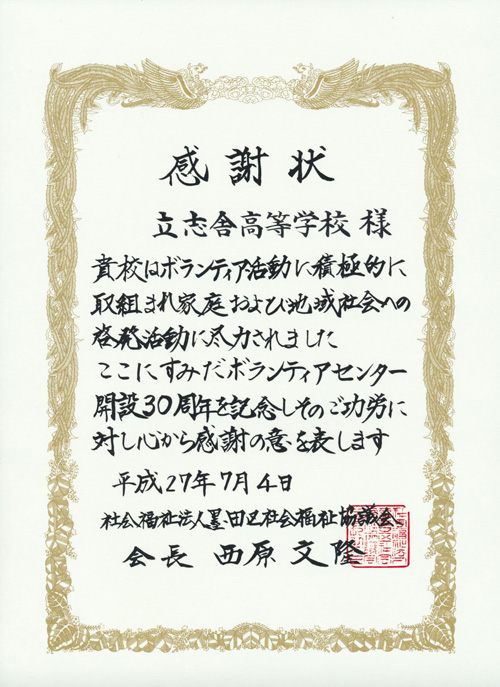 感謝状
立志舎高等学校 様
貴校はボランティア活動に積極的に
取組まれ家庭および地域社会への
啓発活動に尽力されました
ここにすみだボランティアセンター
開設30周年を記念しそのご功労に
対し心から感謝の意を表します
平成27年7月4日
社会福祉法人墨田区社会福祉協議会
会長 西原文隆